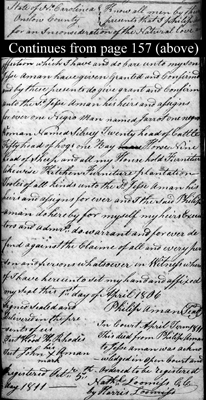 State of No. Carolina } Know all men by these
Onslow County } presents that I Philip
for an in Consideration of the Natural love
Continues from page 157 (above)
affection which I have and do bare unto my son
Jesse Aman have given granted and Confirmed
and by these presents do give grant and confirm
unto the sd. Jesse Aman his heirs and assigns
for ever one Negro Man named Jarrot one negro
Woman Named Sidney Twenty head of Cattle
fifty head of hogs one Bay Horse Nine
head of sheep and all my House hold Furniture
likewise Kitchen Furniture plantation
tools of all kinds unto the sd Jesse Aman his
heirs and assigns for ever and I the said Philip
Aman do hereby for myself my heirs Execu
tors and admrs. do warrant and for ever de
fend against the Claims of all and every per
son and persons whatsoever in Witness whereof
I have hereunto set my hand and affixed
my seal this 1st day of April 1806
Philip Aman Seal
Signed sealed and
Delivered in the pre
sents of us
In Court April Term 1811
This deed from Philip Aman
to Jesse Aman was acknow
ledged in open Court and
Ordered to be registered
Rhodes
his
John X Aman
mark
Registered
May 1811
Nathl. Loomiss CC
by Harris Loomiss